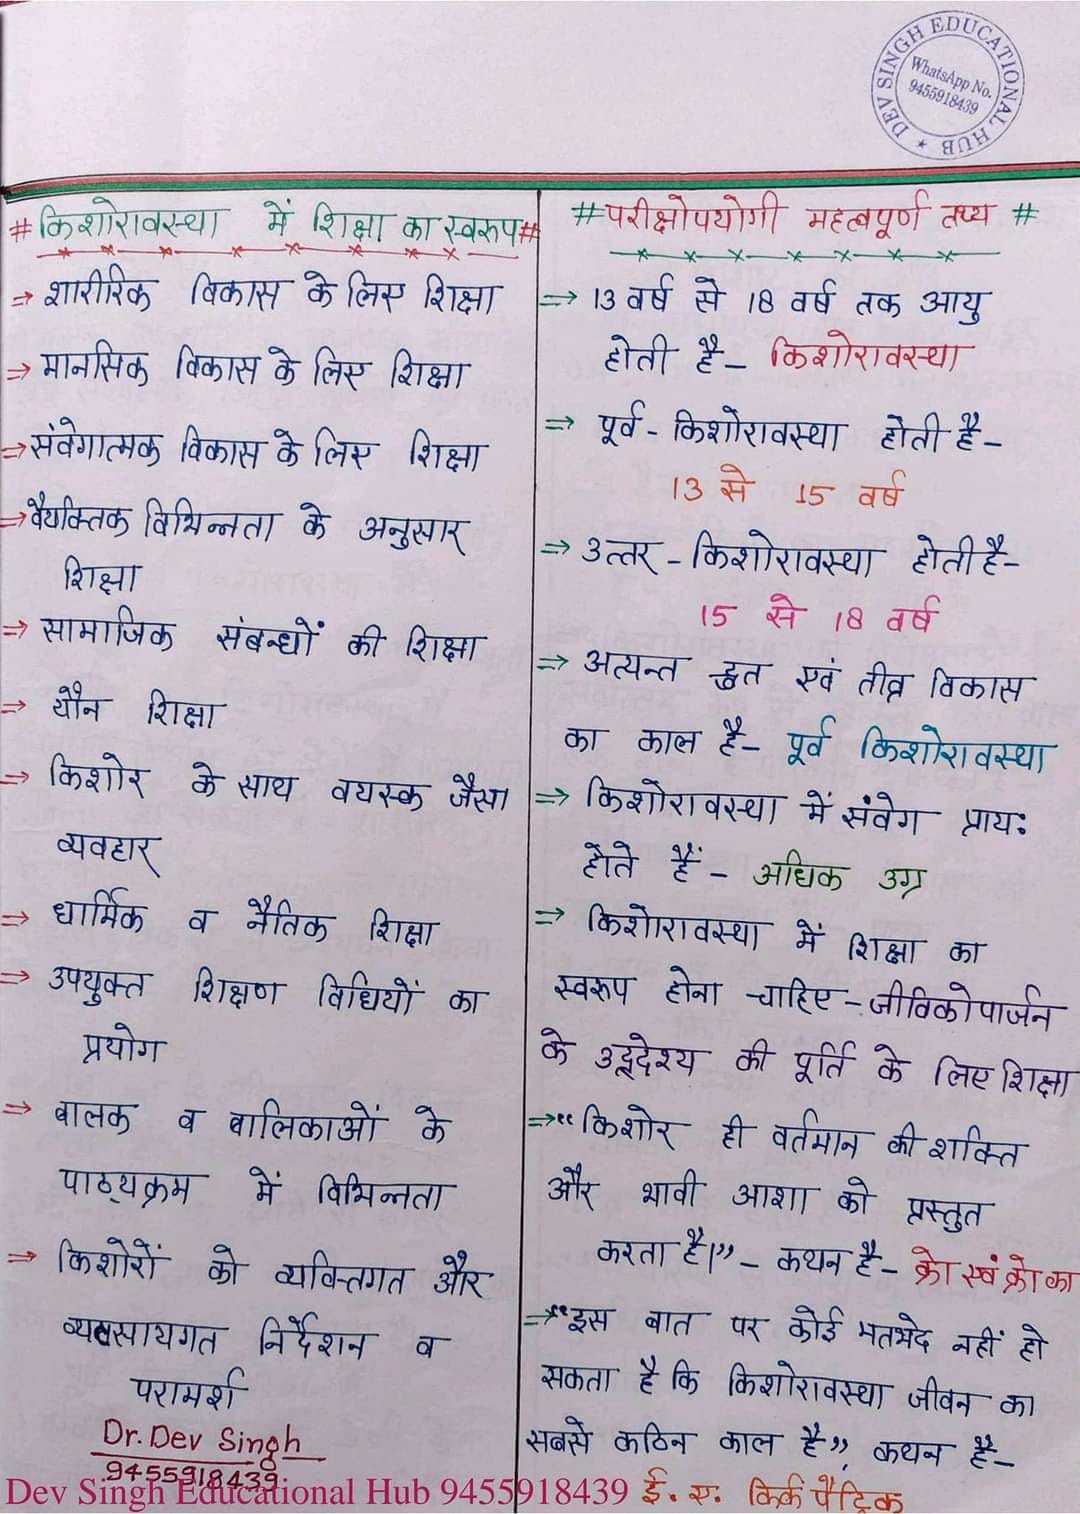 DEV SINGH EDUCATIONAL HUB
WhatsApp No.
9455918439
# किशोरावस्था में शिक्षा का स्वरूप #
⇒ शारीरिक विकास के लिए शिक्षा
⇒ मानसिक विकास के लिए शिक्षा
⇒ संवेगात्मक विकास के लिए शिक्षा
⇒ वैयक्तिक विभिन्नता के अनुसार
शिक्षा
⇒ सामाजिक संबन्धों की शिक्षा
⇒ यौन शिक्षा
⇒ किशोर के साथ वयस्क जैसा
व्यवहार
⇒ धार्मिक व नैतिक शिक्षा
⇒ उपयुक्त शिक्षण विधियों का
प्रयोग
⇒ बालक व बालिकाओं के
पाठ्यक्रम में विभिन्नता
⇒ किशोरों को व्यक्तिगत और
व्यवसायगत निर्देशन व
परामर्श
Dr. Dev Singh
9455918439
# परीक्षोपयोगी महत्वपूर्ण तथ्य #
⇒ 13 वर्ष से 18 वर्ष तक आयु
होती है - किशोरावस्था
⇒ पूर्व - किशोरावस्था होती है -
13 से 15 वर्ष
⇒ उत्तर - किशोरावस्था होती है -
15 से 18 वर्ष
⇒ अत्यन्त द्रुत एवं तीव्र विकास
का काल है - पूर्व किशोरावस्था
⇒ किशोरावस्था में संवेग प्रायः
होते हैं - अधिक उग्र
⇒ किशोरावस्था में शिक्षा का
स्वरूप होना चाहिए - जीविकोपार्जन
के उद्देश्य की पूर्ति के लिए शिक्षा
⇒ "किशोर ही वर्तमान की शक्ति
और भावी आशा को प्रस्तुत
करता है।" - कथन है - क्रो एवं क्रो का
⇒ "इस बात पर कोई मतभेद नहीं हो
सकता है कि किशोरावस्था जीवन का
सबसे कठिन काल है", कथन है -
ई. ए. किर्क पैट्रिक
Dev Singh Educational Hub 9455918439